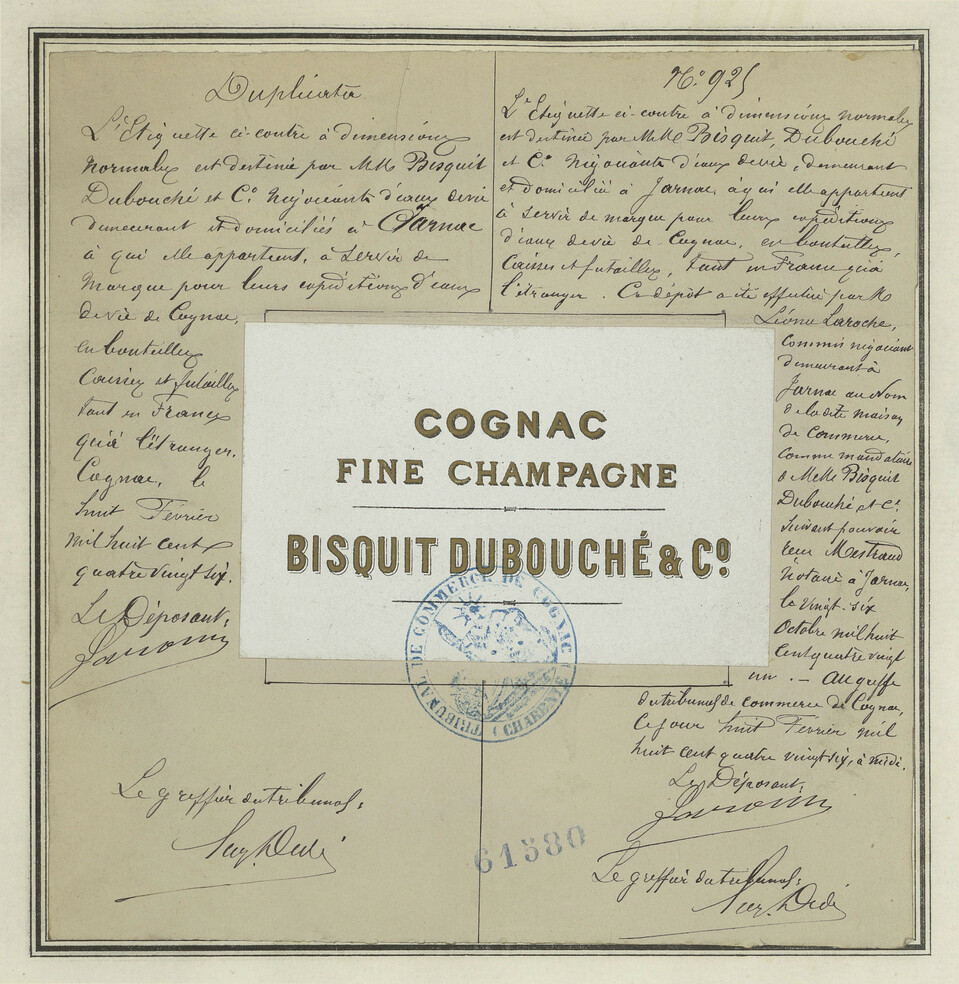 Duplicata
L'Etiquette ci-contre à dimensions
normales est destinée par MM Bisquit
Dubouché et Cº Négociants d'eaux de vie
demeurant et domiciliés à Jarnac
à qui elle appartient, à servir de
marque pour leurs expéditions d'eaux
de vie de Cognac,
en bouteilles
Caisses et futailles
tant en France
qu'à l'étranger.
Cognac, le
huit Février
mil huit cent
quatre vingt six.
Le Déposant:
Le greffier du tribunal:
Nº 925
L'Etiquette ci-contre à dimensions normales
est destinée par MM Bisquit, Dubouché
et Cº Négociants d'eaux de vie, demeurant
et domiciliés à Jarnac, à qui elle appartient
à servir de marque pour leurs expéditions
d'eaux de vie de Cognac, en bouteilles,
Caisses et futailles, tant en France qu'à
l'étranger. Ce dépôt a été effectué par M
Léonce Laroche,
commis négociant
demeurant à
Jarnac au nom
de la dite maison
de Commerce,
comme mandataire
de MM Bisquit
Dubouché et Cº
suivant pouvoir
reçu Mestraud
Notaire à Jarnac,
le vingt-six
Octobre mil huit
cent quatre vingt
un. - Au greffe
du tribunal de commerce de Cognac,
Ce jour huit Février mil
huit cent quatre vingt six, à midi.
Le Déposant:
Le greffier du tribunal:
COGNAC
FINE CHAMPAGNE
BISQUIT DUBOUCHÉ & Cº
TRIBUNAL DE COMMERCE DE COGNAC
(CHARENTE)
61580